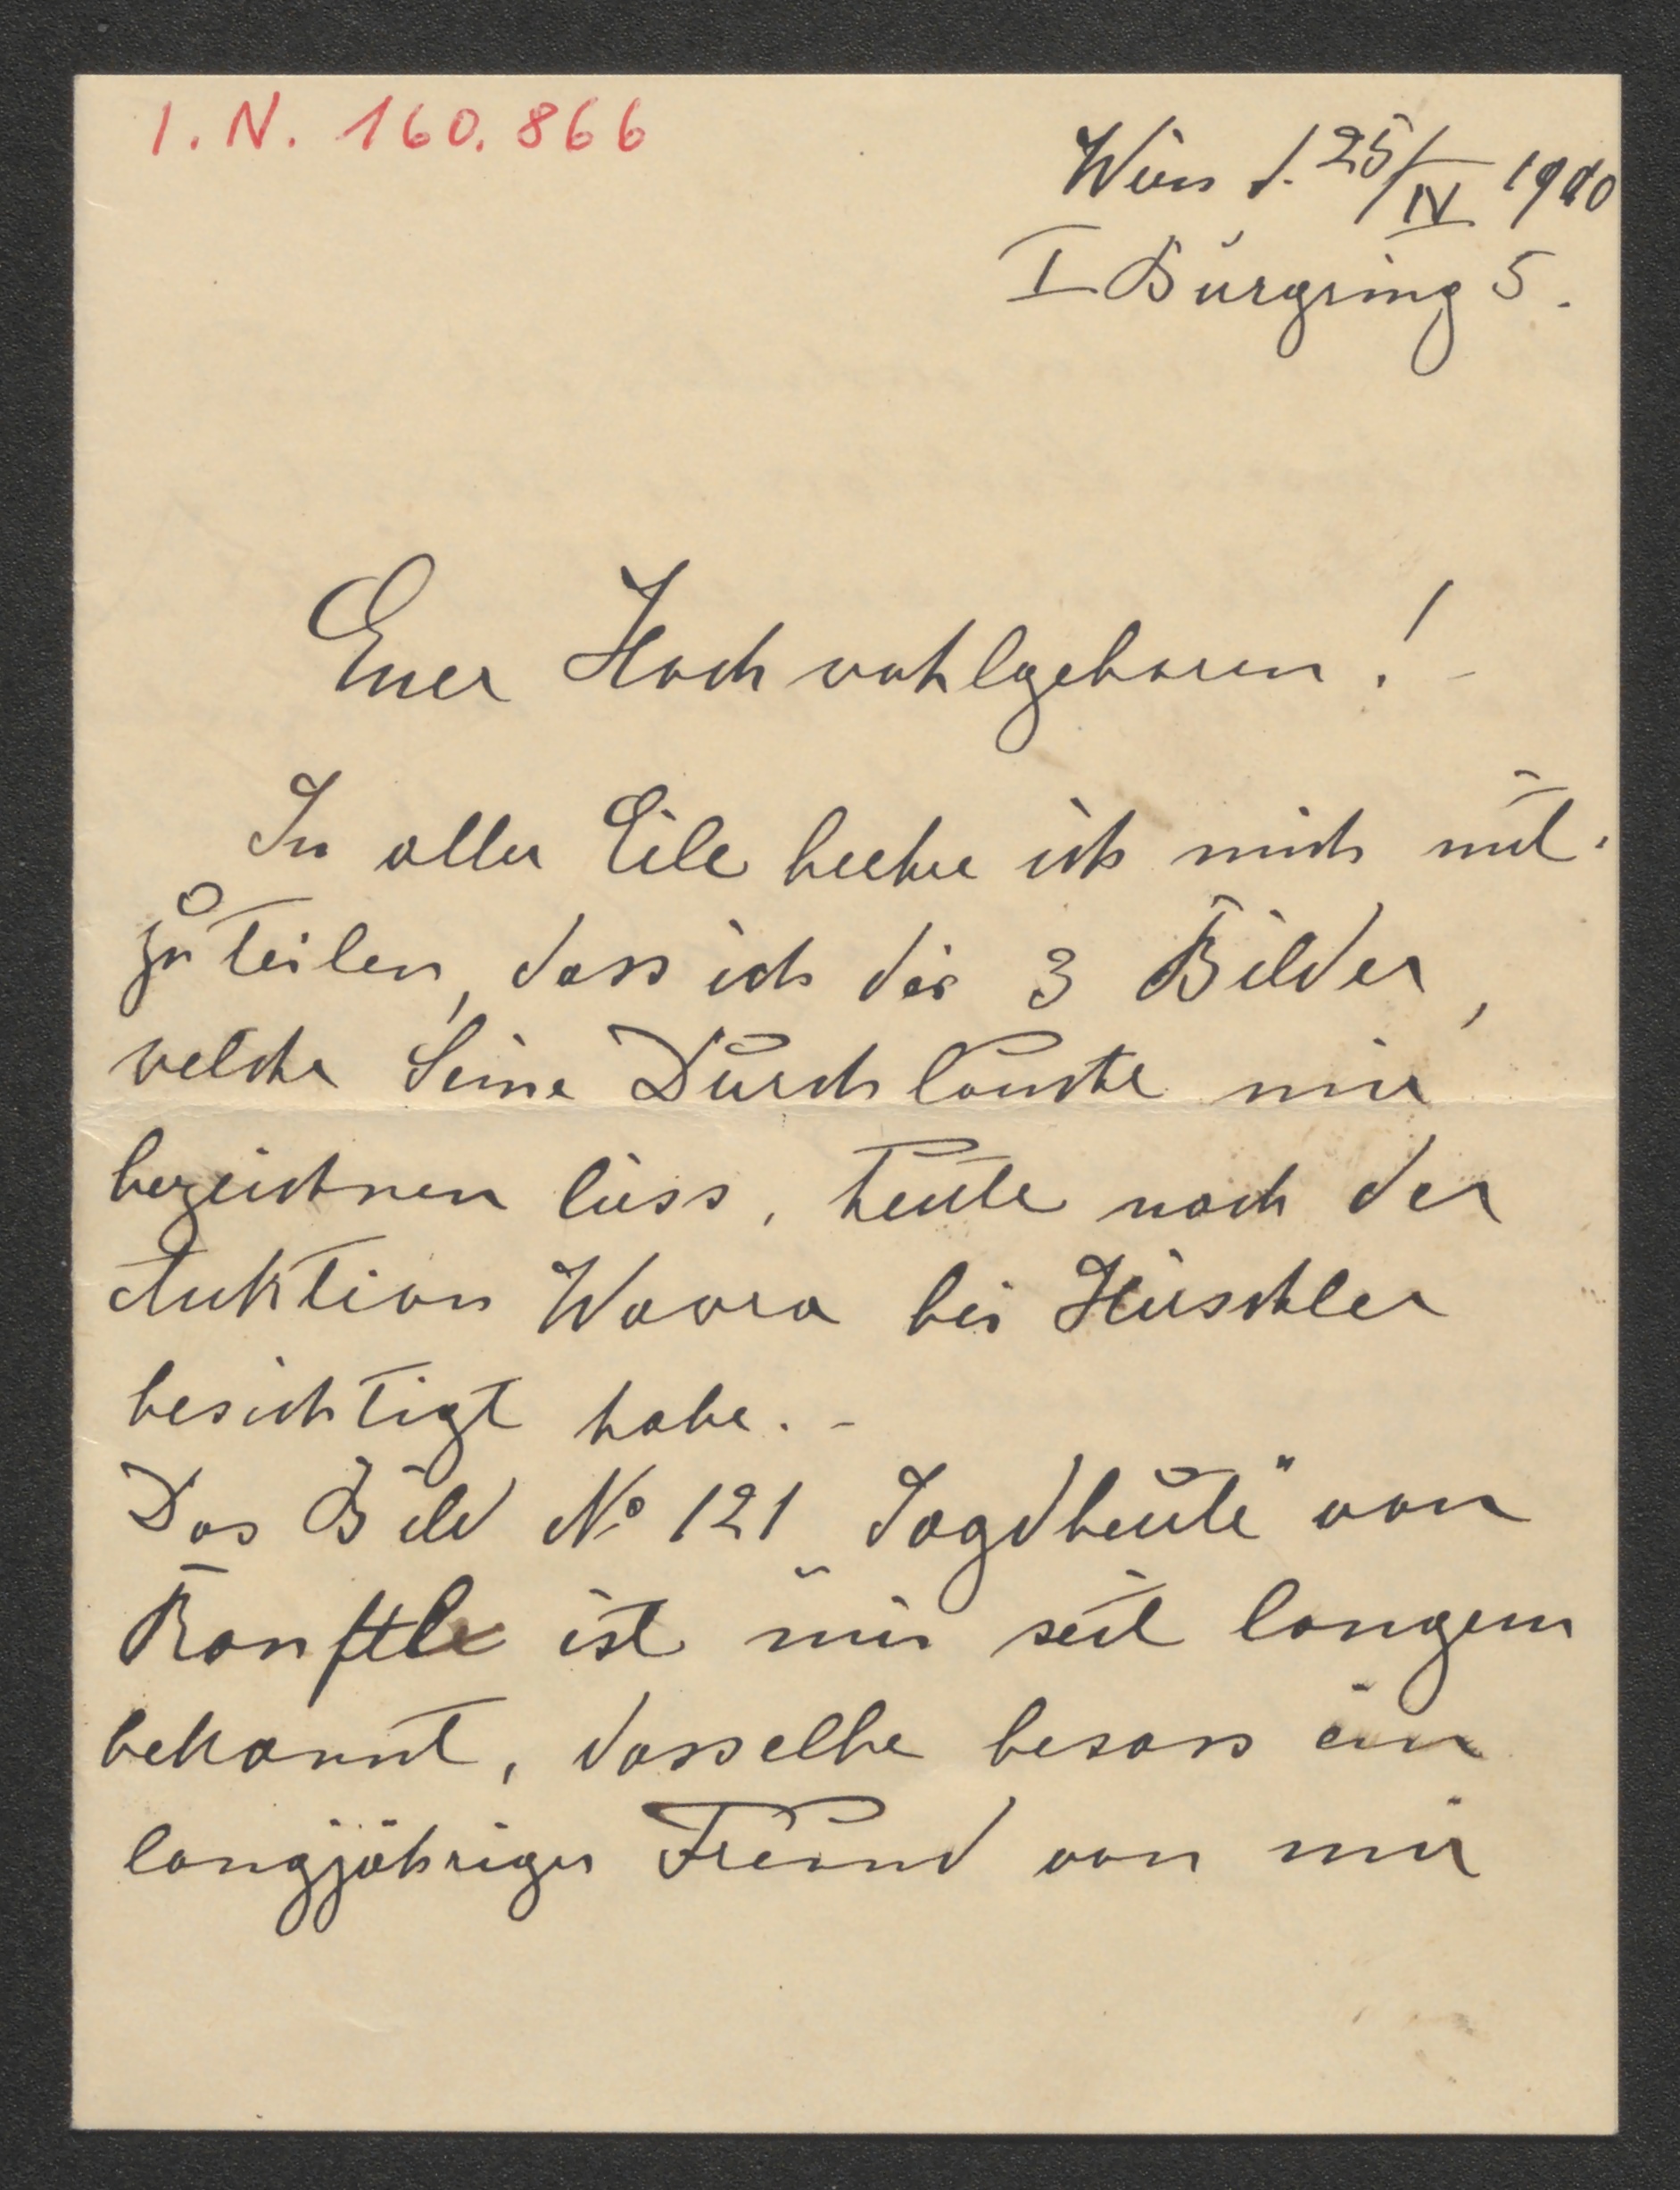 I.N. 160.866
Wien d. 25/IV 1910
I Burgring 5.
Euer Hochwohlgeboren! -
In aller Eile beehre ich mich mit-
zuteilen, dass ich die 3 Bilder,
welche Seine Durchlaucht mir
bezeichnen liess, heute nach der
Auktion Wawra bei Hirschler
besichtigt habe. -
Das Bild No 121 „Jagdbeute" von
Ranftl ist mir seit langem
bekannt, dasselbe besass ein
langjähriger Freund von mir